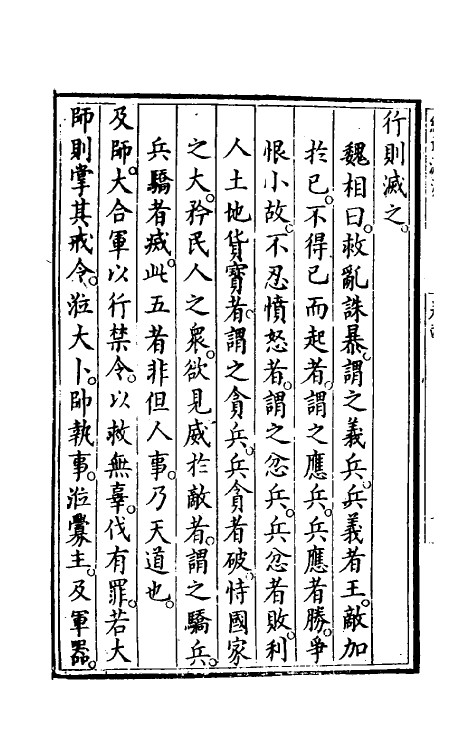 行則滅之。
魏相曰。救亂誅暴。謂之義兵。兵義者王。敵加
扵己。不得已而起者。謂之應兵。兵應者勝。爭
恨小故。不忍憤怒者。謂之忿兵。兵忿者敗。利
人土地貨寳者。謂之貪兵。兵貪者破。恃國家
之大。矜民人之衆。欲見威扵敵者。謂之驕兵。
兵驕者㓕。此五者非但人事。乃天道也。
及師。大合軍以行禁令。以救無辜。伐有罪。若大
師則掌其戒令。涖大卜。帥執事。涖釁主。及軍器。